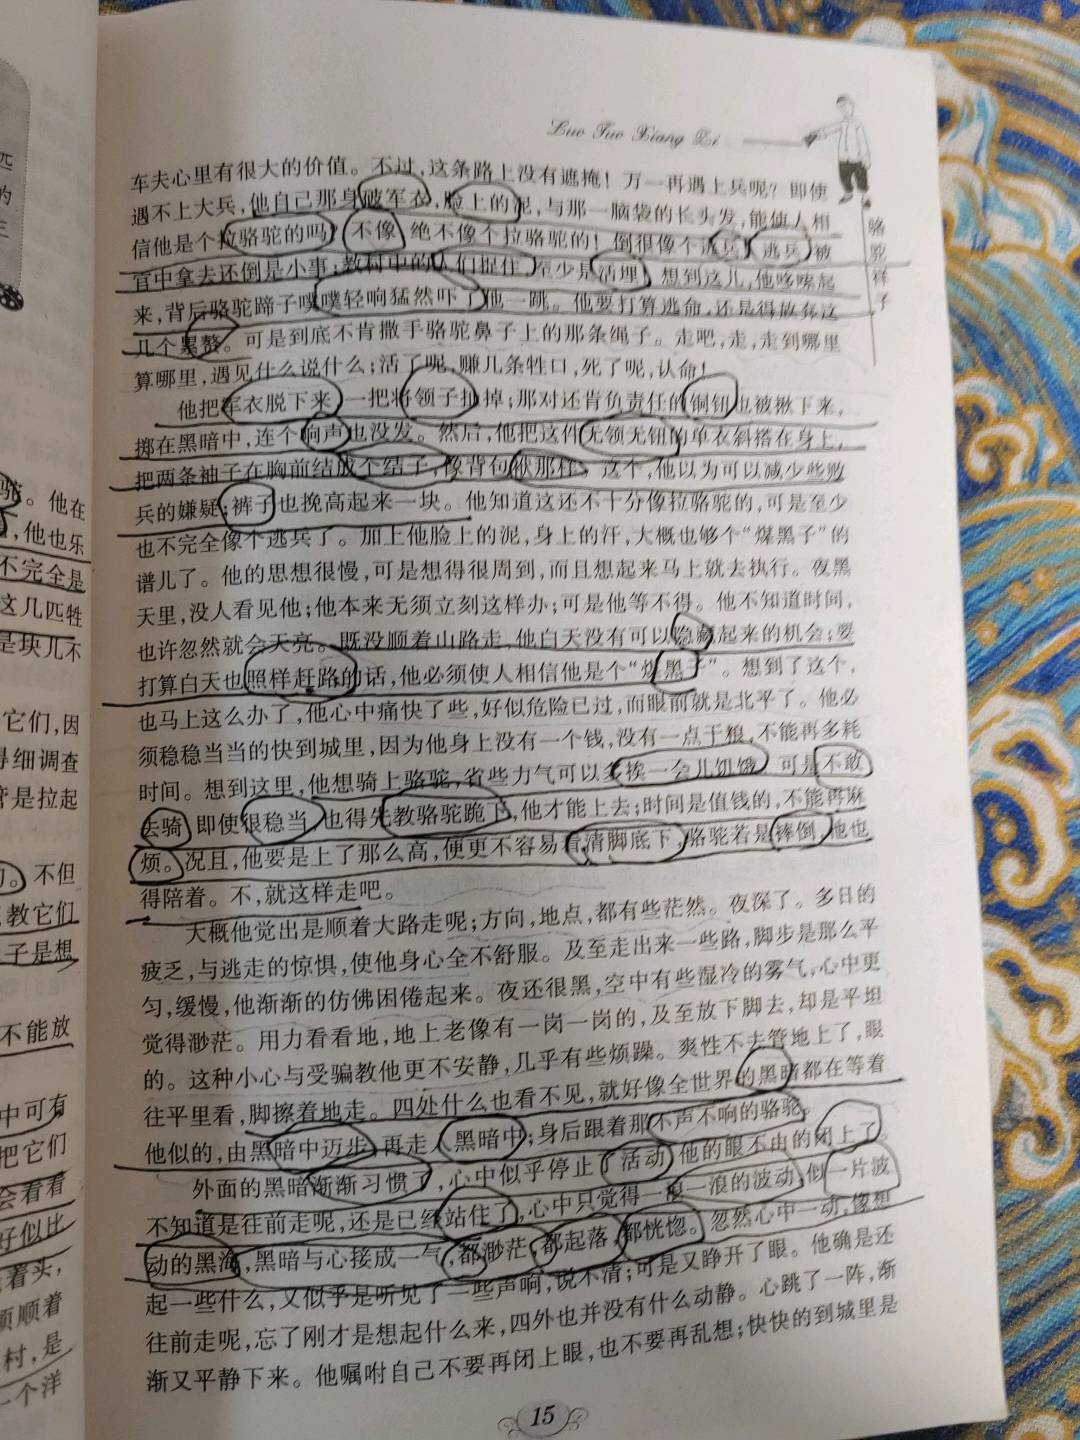 Luo Tuo Xiang Zi
骆驼祥子
车夫心里有很大的价值。不过,这条路上没有遮掩!万一再遇上兵呢?即使
遇不上大兵,他自己那身破军衣,脸上的泥,与那一脑袋的长头发,能使人相
信他是个拉骆驼的吗?不像,绝不像个拉骆驼的!倒很像个逃兵!逃兵,被
官中拿去还倒是小事;教村中的人们捉住,至少是活埋!想到这儿,他哆嗦起
来,背后骆驼蹄子噗噗轻响猛然吓了他一跳。他要打算逃命,还是得放弃这
几个累赘。可是到底不肯撒手骆驼鼻子上的那条绳子。走吧,走,走到哪里
算哪里,遇见什么说什么;活了呢,赚几条牲口;死了呢,认命!
他把军衣脱下来,一把将领子扯掉;那对还肯负责任的铜钮也被揪下来,
掷在黑暗中,连个响声也没发。然后,他把这件无领无钮的单衣斜搭在身上,
把两条袖子在胸前结成个结子,像背包袱那样。这个,他以为可以减少些败
兵的嫌疑;裤子也挽高起来一块。他知道这还不十分像拉骆驼的,可是至少
也不完全像个逃兵了。加上他脸上的泥,身上的汗,大概也够个“煤黑子”的
谱儿了。他的思想很慢,可是想得很周到,而且想起来马上就去执行。夜黑
天里,没人看见他;他本来无须立刻这样办;可是他等不得。他不知道时间,
也许忽然就会天亮。既没顺着山路走,他白天没有可以隐藏起来的机会;要
打算白天也照样赶路的话,他必须使人相信他是个“煤黑子”。想到了这个,
也马上这么办了,他心中痛快了些,好似危险已过,而眼前就是北平了。他必
须稳稳当当的快到城里,因为他身上没有一个钱,没有一点干粮,不能再多耗
时间。想到这里,他想骑上骆驼,省些力气可以多挨一会儿饥饿。可是不敢
去骑,即使很稳当,也得先教骆驼跪下,他才能上去;时间是值钱的,不能再麻
烦。况且,他要是上了那么高,便更不容易看清脚底下,骆驼若是摔倒,他也
得陪着。不,就这样走吧。
大概他觉出是顺着大路走呢;方向,地点,都有些茫然。夜深了。多日的
疲乏,与逃走的惊惧,使他身心全不舒服。及至走出来一些路,脚步是那么平
匀,缓慢,他渐渐的仿佛困倦起来。夜还很黑,空中有些湿冷的雾气,心中更
觉得渺茫。用力看看地,地上老像有一岗一岗的,及至放下脚去,却是平坦
的。这种小心与受骗教他更不安静,几乎有些烦躁。爽性不去管地上了,眼
往平里看,脚擦着地走。四处什么也看不见,就好像全世界的黑暗都在等着
他似的,由黑暗中迈步,再走入黑暗中;身后跟着那不声不响的骆驼。
外面的黑暗渐渐习惯了,心中似乎停止了活动,他的眼不由的闭上了。
不知道是往前走呢,还是已经站住了,心中只觉得一浪一浪的波动,似一片波
动的黑海,黑暗与心接成一气,都渺茫,都起落,都恍惚。忽然心中一动,像想
起一些什么,又似乎是听见了一些声响,说不清;可是又睁开了眼。他确是还
往前走呢,忘了刚才是想起什么来,四外也并没有什么动静。心跳了一阵,渐
渐又平静下来。他嘱咐自己不要再闭上眼,也不要再乱想;快快的到城里是
15
匹
的
三
驼。他在
,他也乐
不完全是
这几匹牲
是块儿不
它们,因
得细调查
是拉起
。不但
教它们
子是想
不能放
中可有
把它们
会看看
好似比
着头,
须顺着
村,是
一个洋